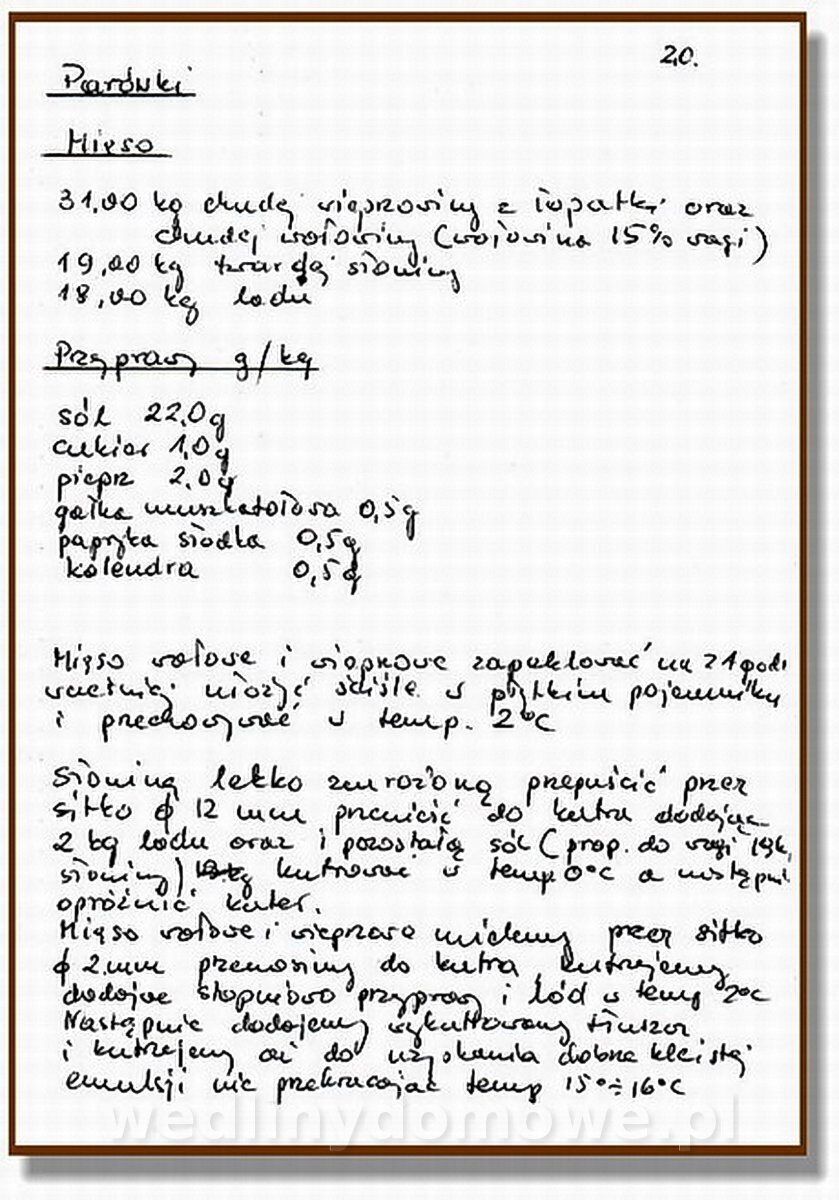 20.
Parówki
Mięso
31,00 kg chudej wieprzowiny z łopatki oraz
chudej wołowiny (wołowina 15% wagi)
19,00 kg twardej słoniny
18,00 kg lodu
Przyprawy g/kg
sól 22,0g
cukier 1,0g
pieprz 2,0g
gałka muszkatołowa 0,5g
papryka słodka 0,5g
kolendra 0,5g
Mięso wołowe i wieprzowe zapeklować na godz
wcześniej ułożyć ściśle w płytkim pojemniku
i przechowywać w temp. 2°C
Słoninę lekko zmrożoną przepuścić przez
sitko φ 12 mm przenieść do kutra dodając
2 kg lodu oraz i pozostałą sól (prop. do wagi
słoniny) kutrować w temp. 0°C a następnie
opróżnić kuter.
Mięso wołowe i wieprzowe mielemy przez sitko
φ 2 mm przenosimy do kutra kutrujemy
dodając stopniowo przyprawy i lód w temp 2°C
Następnie dodajemy wykutrowany tłuszcz
i kutrujemy aż do uzyskania dobrze kleistej
emulsji nie przekraczając temp 15°÷16°C
wedlinydomowe.pl